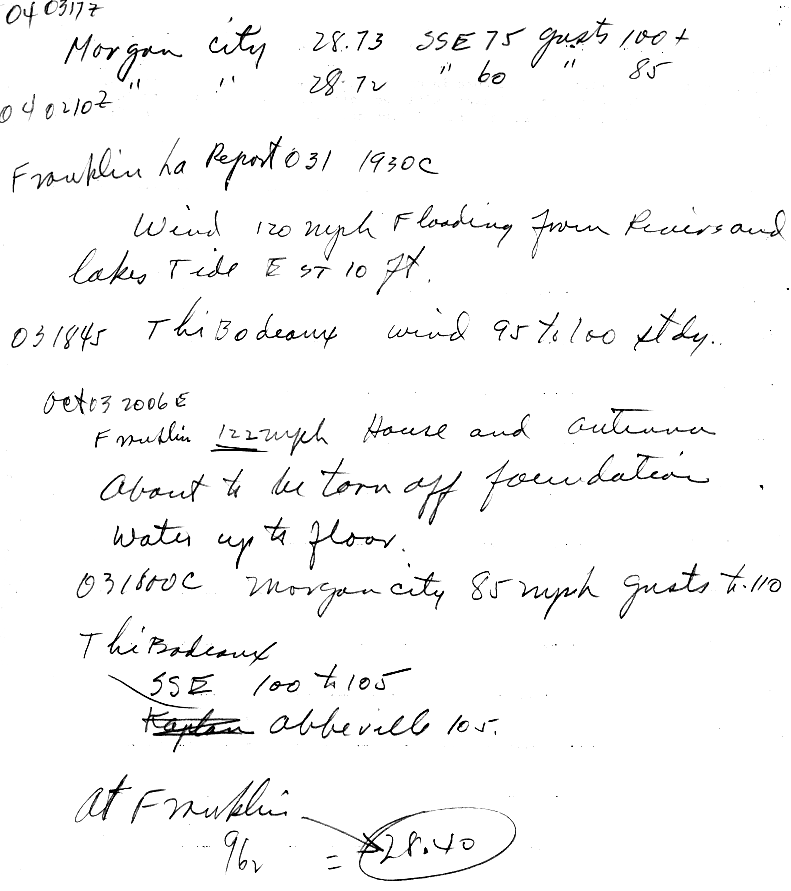 04 0317Z
Morgan city 28.73 SSE 75 gusts 100+
" " 28.72 " 60 " 85
040210Z
Franklin La Report 031 1930C
Wind 120 mph Flooding from Rivers and
lakes Tide EST 10 ft.
031845 ThiBodeaux wind 95 to 100 stdy.
Oct 03 2006E
Franklin 122 mph House and antenna
About to be torn off foundation.
Water up to floor.
031800C Morgan city 85 mph gusts to 110
ThiBodeaux
SSE 100 to 105
Kaplan Abbeville 105.
At Franklin
962 = 28.40